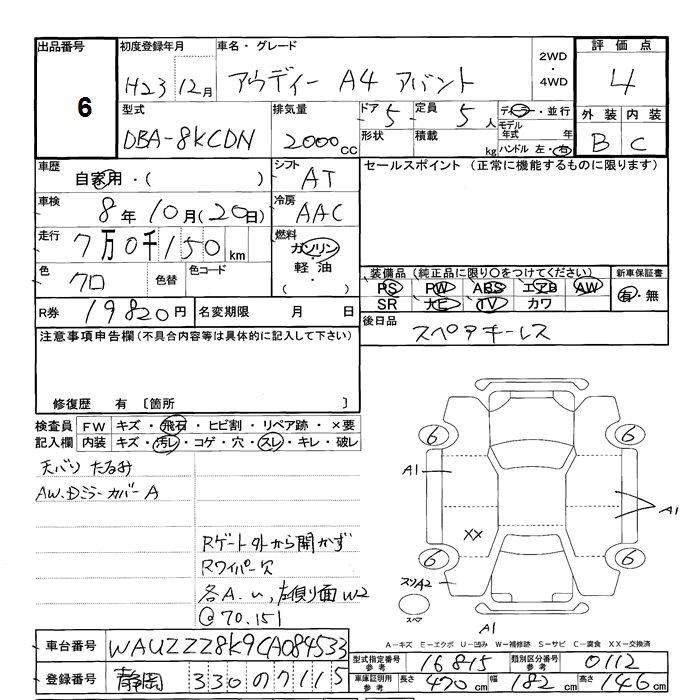 出品番号 6
初度登録年月 H23 12月
車名・グレード アウディー A4 アバント
2WD・4WD
評価点 4
外装 B 内装 C
型式 DBA-8KCDN
排気量 2000cc
ドア 5 定員 5人
形状 積載 kg
ディーラー・並行
モデル年式 年
ハンドル 左・右
車歴 自家用・( )
シフト AT
セールスポイント (正常に機能するものに限ります)
車検 8年10月(20日)
冷房 AAC
走行 7万0千150km
燃料 ガソリン・軽油・( )
色 クロ 色替 色コード
装備品(純正品に限り○をつけてください)
PS PW ABS エアB AW
SR ナビ TV カワ
新車保証書 有・無
R券 19820円 名変期限 月 日
後日品 スペアキーレス
注意事項申告欄(不具合内容等は具体的に記入して下さい)
修復歴 有〔箇所 〕
検査員記入欄
FW キズ・飛石・ヒビ割・リペア跡・×要
内装 キズ・汚レ・コゲ・穴・スレ・キレ・破レ
天バリ たるみ
AW.Dミラーカバー A
Rゲート外から開かず
Rワイパー欠
各A.U,左側面W2
@70.151
6 6
A1
A1
XX
6 6
スソA2
スペア
A1
A-キズ E-エクボ U-凹み W-補修跡 S-サビ C-腐食 XX-交換済
車台番号 WAUZZZ8K9CA084533
型式指定番号 参考 16815 類別区分番号 参考 0112
登録番号 静岡 330 の 7115
車庫証明用 参考 長さ 470cm 幅 182cm 高さ 146cm